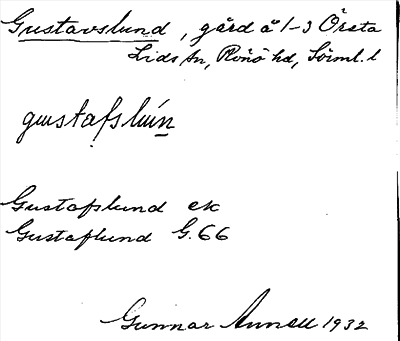 Gustavslund, gård å 1-3 Örsta
Lids sn, Rönö hd, Sörml. l
gɯstafslɯ́n
Gustafslund ek
Gustaflund G. 66
Gunnar Annell 1932